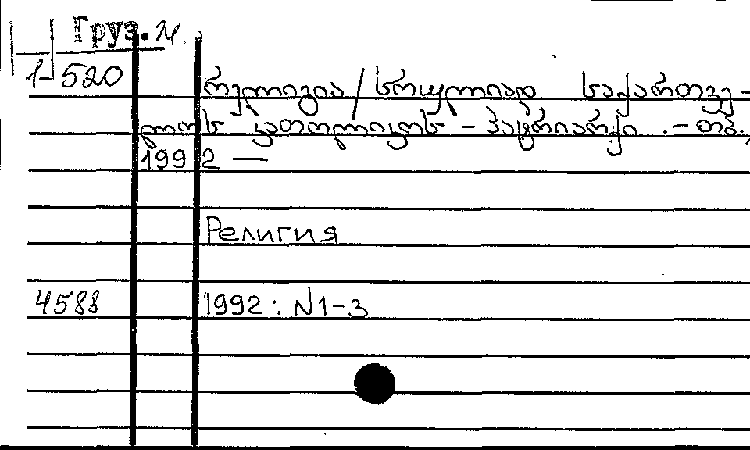 Груз. М.
1-520
რელიგია / სრულიად საქართვე-
ლოს კათოლიკოს - პატრიარქი. - თბ.,
1992 —
Религия
4588
1992: N1-3